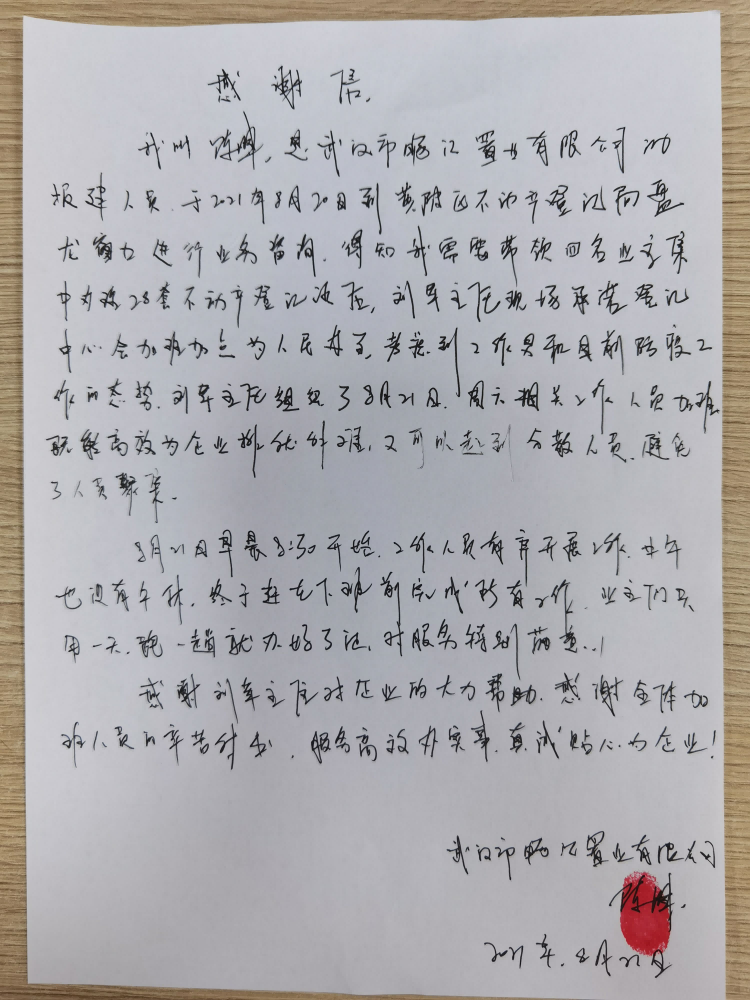 感谢信.
我叫陈晔,是武汉市畅汇置业有限公司的
报建人员.于2021年8月20日到黄陂区不动产登记局盘
龙窗口进行业务咨询.得知我需要带领四名业主集
中办理28套不动产登记证后,刘军主任现场承诺登记
中心会加班加点为人民办事,考虑到工作具和目前防疫工
作的态势.刘军主任组织了8月21日.周六相关工作人员加班
既能高效为企业排忧解难,又可以起到分散人员.避免
了人员聚集.
8月21日早晨8:30开始.工作人员有序开展工作.中午
也没有午休.终于赶在下班前完成所有工作.业主们只
用一天.跑一趟就办好了证.对服务特别满意..!
感谢刘军主任对企业的大力帮助.感谢全体加
班人员的辛苦付出.服务高效办实事.真诚贴心为企业!
武汉市畅汇置业有限公司
陈晔.
2021年.8月21日